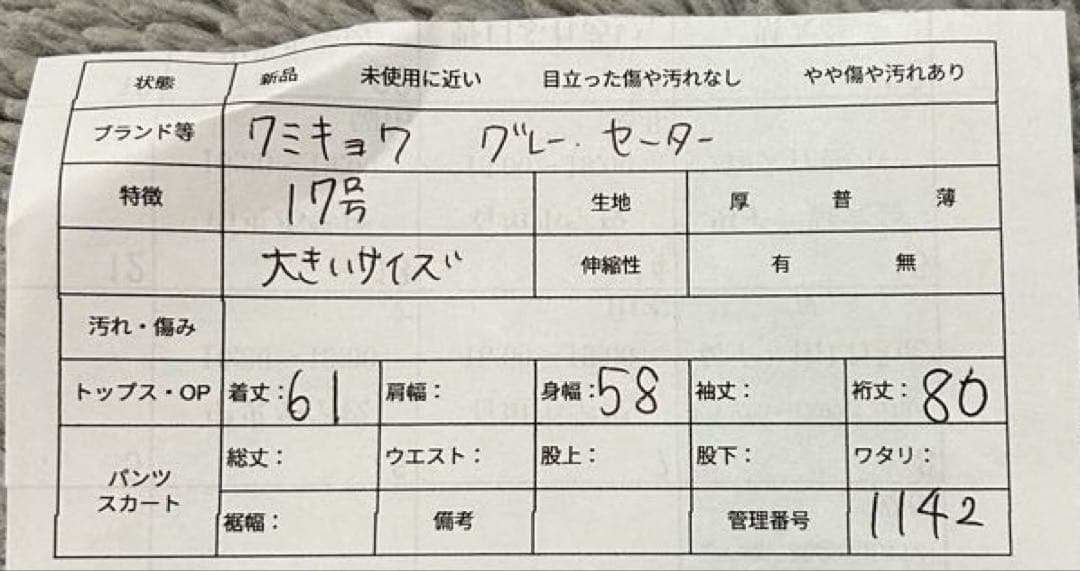 状態 新品 未使用に近い 目立った傷や汚れなし やや傷や汚れあり
ブランド等 クミキョク グレー セーター
特徴 17号 生地 厚 普 薄
大きいサイズ 伸縮性 有 無
汚れ・傷み
トップス・OP 着丈：61 肩幅： 身幅：58 袖丈： 裄丈：80
パンツ スカート 総丈： ウエスト： 股上： 股下： ワタリ：
裾幅： 備考 管理番号 1142